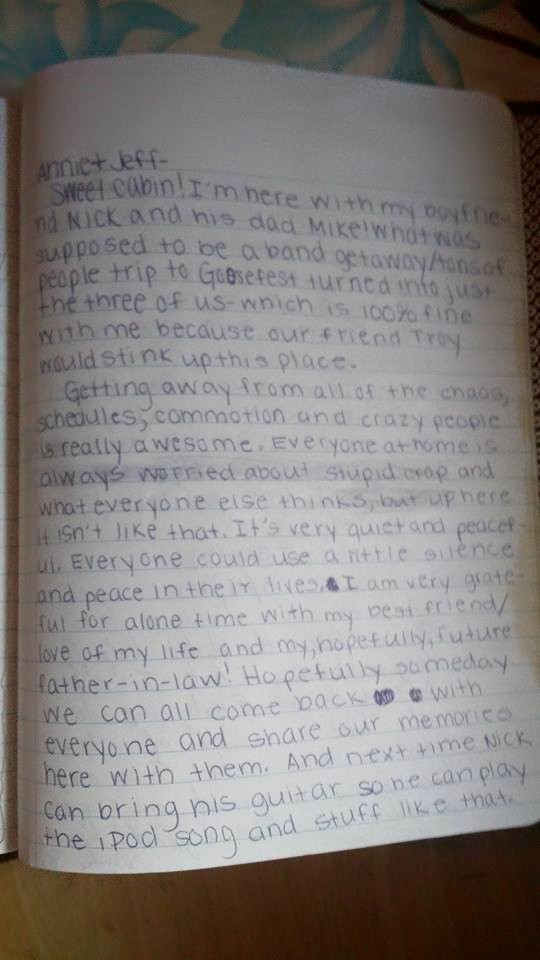 Annie + Jeff-
Sweet cabin! I'm here with my boyfrie-
nd Nick and his dad Mike! What was
supposed to be a band getaway/tons of
people trip to Goosefest turned into just
the three of us-which is 100% fine
with me because our friend Troy
would stink up this place.
Getting away from all of the chaos,
schedules, commotion and crazy people
is really awesome. Everyone at home is
always worried about stupid crap and
what everyone else thinks, but up here
it isn't like that. It's very quiet and peacef-
ul. Everyone could use a little silence
and peace in their lives. I am very grate-
ful for alone time with my best friend/
love of my life and my, hopefully, future
father-in-law! Hopefully someday
we can all come back with
everyone and share our memories
here with them. And next time Nick
can bring his guitar so he can play
the ipod song and stuff like that.